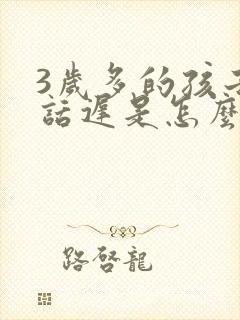 3歲多的孩子
話遲是怎麼
路啓龍